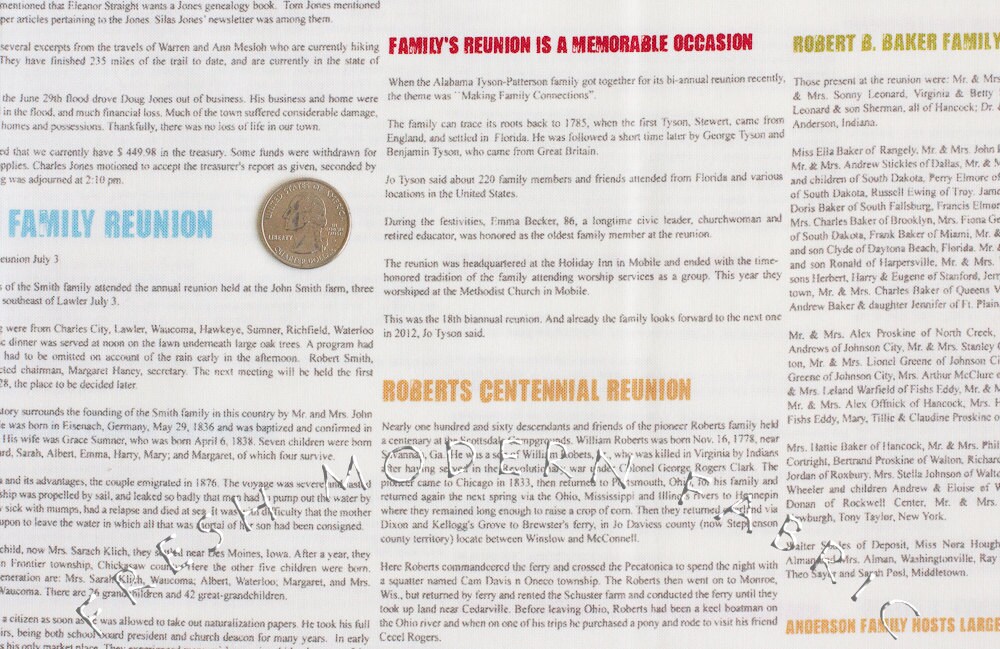 mentioned that Eleanor Straight wants a Jones genealogy book. Tom Jones mentioned
per articles pertaining to the Jones. Silas Jones' newsletter was among them.
several excerpts from the travels of Warren and Ann Mesloh who are currently hiking
They have finished 235 miles of the trail to date, and are currently in the state of
the June 29th flood drove Doug Jones out of business. His business and home were
in the flood, and much financial loss. Much of the town suffered considerable damage,
homes and possessions. Thankfully, there was no loss of life in our town.
ed that we currently have $ 449.98 in the treasury. Some funds were withdrawn for
pplies. Charles Jones motioned to accept the treasurer's report as given, seconded by
g was adjourned at 2:10 pm.
FAMILY REUNION
eunion July 3
s of the Smith family attended the annual reunion held at the John Smith farm, three
southeast of Lawler July 3.
g were from Charles City, Lawler, Waucoma, Hawkeye, Sumner, Richfield, Waterloo
ic dinner was served at noon on the lawn underneath large oak trees. A program had
had to be omitted on account of the rain early in the afternoon. Robert Smith,
cted chairman, Margaret Haney, secretary. The next meeting will be held the first
28, the place to be decided later.
tory surrounds the founding of the Smith family in this country by Mr. and Mrs. John
e was born in Eisenach, Germany, May 29, 1836 and was baptized and confirmed in
His wife was Grace Sumner, who was born April 6, 1838. Seven children were born
ard, Sarah, Albert, Emma, Harry, Mary; and Margaret, of which four survive.
a and its advantages, the couple emigrated in 1876. The voyage was severe
ship was propelled by sail, and leaked so badly that men had to pump out the water by
y sick with mumps, had a relapse and died at sea. It was difficulty that the mother
upon to leave the water in which all that was mortal of her son had been consigned.
child, now Mrs. Sarach Klich, they near Des Moines, Iowa. After a year, they
n Frontier township, Chickasaw county. Here the other five children were born.
eneration are: Mrs. Sarah Klich, Waucoma; Albert, Waterloo; Margaret, and Mrs.
Waucoma. There are 26 grandchildren and 42 great-grandchildren.
a citizen as soon as he was allowed to take out naturalization papers. He took his full
irs, being both school board president and church deacon for many years. In early
LIBERTY
FAMILY'S REUNION IS A MEMORABLE OCCASION
When the Alabama Tyson-Patterson family got together for its bi-annual reunion recently,
the theme was ``Making Family Connections''.
The family can trace its roots back to 1785, when the first Tyson, Stewert, came from
England, and settled in Florida. He was followed a short time later by George Tyson and
Benjamin Tyson, who came from Great Britain.
Jo Tyson said about 220 family members and friends attended from Florida and various
locations in the United States.
During the festivities, Emma Becker, 86, a longtime civic leader, churchwoman and
retired educator, was honored as the oldest family member at the reunion.
The reunion was headquartered at the Holiday Inn in Mobile and ended with the time-
honored tradition of the family attending worship services as a group. This year they
worshiped at the Methodist Church in Mobile.
This was the 18th biannual reunion. And already the family looks forward to the next one
in 2012, Jo Tyson said.
ROBERTS CENTENNIAL REUNION
Nearly one hundred and sixty descendants and friends of the pioneer Roberts family held
a centenary at campgrounds. William Roberts was born Nov. 16, 1778, near
Ga. He is a son of William Roberts, who was killed in Virginia by Indians
after having served in the revolutionary war under Colonel George Rogers Clark. The
pioneer came to Chicago in 1833, then returned to Portsmouth, Ohio his family and
returned again the next spring via the Ohio, Mississippi and Illinois rivers to Hennepin
where they remained long enough to raise a crop of corn. Then they returned via
Dixon and Kellogg's Grove to Brewster's ferry, in Jo Daviess county (now Stephenson
county territory) locate between Winslow and McConnell.
Here Roberts commandeered the ferry and crossed the Pecatonica to spend the night with
a squatter named Cam Davis n Oneco township. The Roberts then went on to Monroe,
Wis., but returned by ferry and rented the Schuster farm and conducted the ferry until they
took up land near Cedarville. Before leaving Ohio, Roberts had been a keel boatman on
the Ohio river and when on one of his trips he purchased a pony and rode to visit his friend
Cecel Rogers.
ROBERT B. BAKER FAMILY
Those present at the reunion were: Mr. & Mrs.
& Mrs. Sonny Leonard, Virginia & Betty
Leonard & son Sherman, all of Hancock; Dr.
Anderson, Indiana.
Miss Ella Baker of Rangely, Mr. & Mrs. John
Mr. & Mrs. Andrew Stickles of Dallas, Mr. & 
and children of South Dakota, Perry Elmore of
of South Dakota, Russell Ewing of Troy, Jame
Doris Baker of South Fallsburg, Francis Elmo
Mrs. Charles Baker of Brooklyn, Mrs. Fiona Gr
of South Dakota, Frank Baker of Miami, Mr. &
and son Clyde of Daytona Beach, Florida. Mr. &
and son Ronald of Harpersville, Mr. & Mrs.
sons Herbert, Harry & Eugene of Stanford, Jer
town, Mr. & Mrs. Charles Baker of Queens V
Andrew Baker & daughter Jennifer of Ft. Plain
Mr. & Mrs. Alex Proskine of North Creek,
Andrews of Johnson City, Mr. & Mrs. Stanley
ton, Mr. & Mrs. Lionel Greene of Johnson Ci
Greene of Johnson City, Mrs. Arthur McClure
& Mrs. Leland Warfield of Fishs Eddy, Mr. &
Mr. & Mrs. Alex Offnick of Hancock, Mrs. H
Fishs Eddy, Mary, Tillie & Claudine Proskine o
Mrs. Hattie Baker of Hancock, Mr. & Mrs. Phil
Cortright, Bertrand Proskine of Walton, Richard
Jordan of Roxbury. Mrs. Stella Johnson of Walto
Wheeler and children Andrew & Eloise of W
Donan of Rockwell Center, Mr. & Mrs.
Newburgh, Tony Taylor, New York.
Walter of Deposit, Miss Nora Hough
Almana Mrs. Alman, Washingtonville, Ray
Theo and Sarah Posl, Middletown.
ANDERSON FAMILY HOSTS LARGE
FRESH MODERN FABRIC